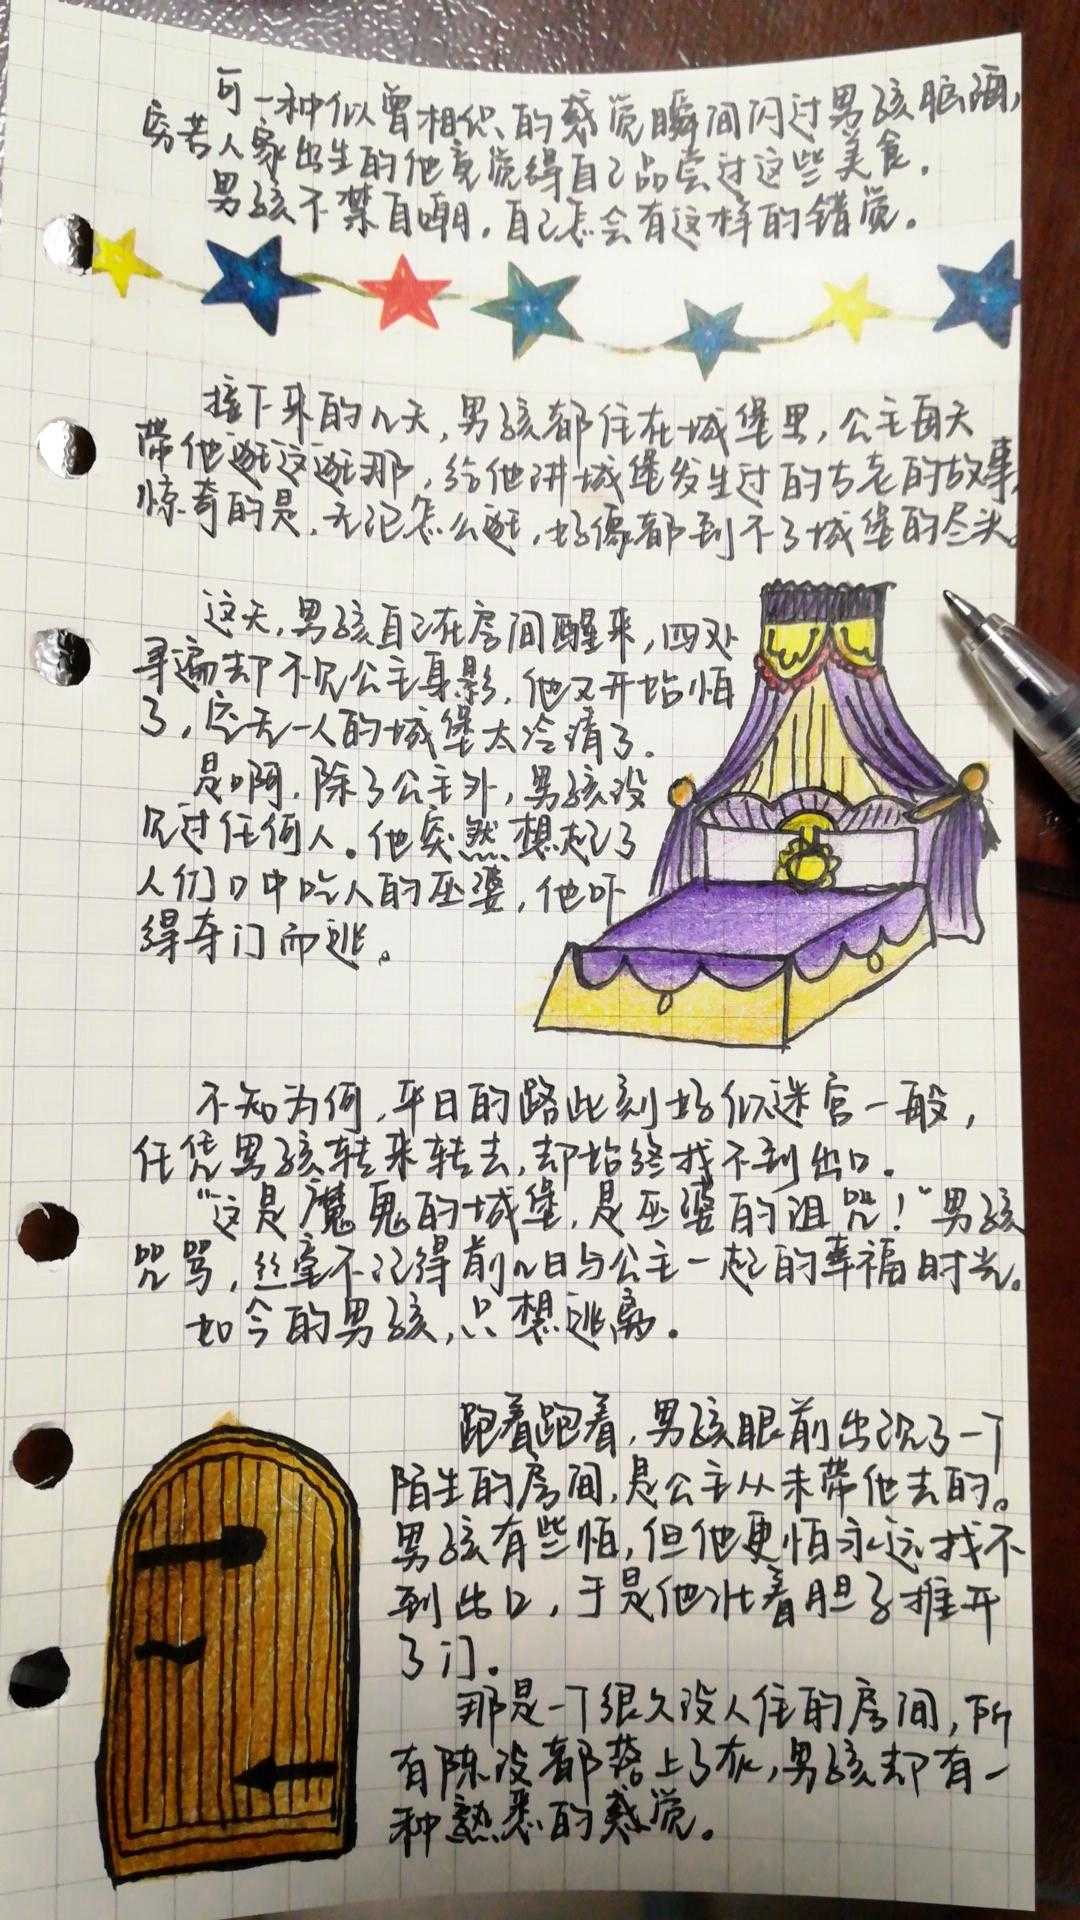 可一种似曾相识的感觉瞬间闪过男孩脑海，
穷苦人家出生的他竟觉得自己品尝过这些美食。
男孩不禁自嘲，自己怎会有这样的错觉。
接下来的几天，男孩都住在城堡里，公主每天
带他逛这逛那，给他讲城堡发生过的古老的故事，
惊奇的是，无论怎么逛，好像都到不了城堡的尽头。
这天，男孩自己在房间醒来，四处
寻遍却不见公主身影，他又开始怕
了，空无一人的城堡太冷清了。
是啊，除了公主外，男孩没
见过任何人。他突然想起了
人们口中吃人的巫婆，他吓
得夺门而逃。
不知为何，平日的路此刻好似迷宫一般，
任凭男孩转来转去，却始终找不到出口。
“这是魔鬼的城堡，是巫婆的诅咒！”男孩
咒骂，丝毫不记得前几日与公主一起的幸福时光。
如今的男孩，只想逃离。
跑着跑着，男孩眼前出现了一个
陌生的房间，是公主从未带他去的。
男孩有些怕，但他更怕永远找不
到出口，于是他壮着胆子推开
了门。
那是一个很久没人住的房间，所
有陈设都落上了灰，男孩却有一
种熟悉的感觉。